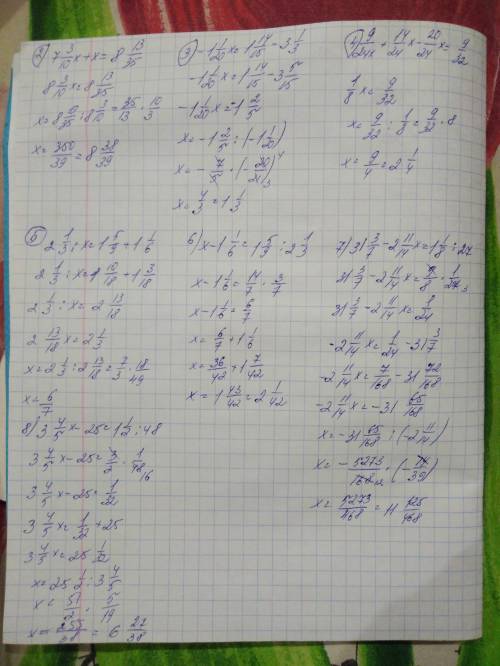 2) 7 3/10 x + x = 8 13/35
8 3/10 x = 8 13/35
x = 350/39 = 8 38/39
3) -1 1/20 x = 1 14/15 - 3 1/3
-1 1/20 x = 1 14/15 - 3 5/15
-1 1/20 x = -1 2/5
x = -1 2/5 : (-1 1/20)
x = - 7/5 · (- 20/21)
x = 4/3 = 1 1/3
4) 9/24 x + 14/24 x - 20/24 x = 9/32
1/8 x = 9/32
x = 9/32 : 1/8 = 9/32 · 8
x = 9/4 = 2 1/4
5)
2 1/3 : x = 1 5/9 + 1 1/6
2 1/3 : x = 1 10/18 + 1 3/18
2 1/3 : x = 2 13/18
2 13/18 x = 2 1/3
x = 2 1/3 : 2 13/18 = 7/3 · 18/49
x = 6/7
6) x - 1 1/6 = 1 5/9 : 2 1/3
x - 1 1/6 = 14/7 · 3/7
x - 1 1/6 = 6/7
x = 6/7 + 1 1/6
x = 36/42 + 1 7/42
x = 1 43/42 = 2 1/42
7) 31 3/7 - 2 11/14 x = 1 1/8 : 27
31 3/7 - 2 11/14 x = 9/8 · 1/27 3
31 3/7 - 2 11/14 x = 1/24
-2 11/14 x = 1/24 - 31 3/7
-2 11/14 x = 7/168 - 31 72/168
-2 11/14 x = -31 65/168
x = -31 65/168 : (-2 11/14)
x = - 5273/168 12 · (- 14/39)
x = 5273/468 = 11 125/468
8) 3 4/5 x - 25 = 1 1/2 : 48
3 4/5 x - 25 = 3/2 · 1/48 16
3 4/5 x - 25 = 1/32
3 4/5 x = 1/32 + 25
3 4/5 x = 25 1/32
x = 25 1/2 : 3 4/5
x = 51/2 · 5/19
x = 255/38 = 6 27/38